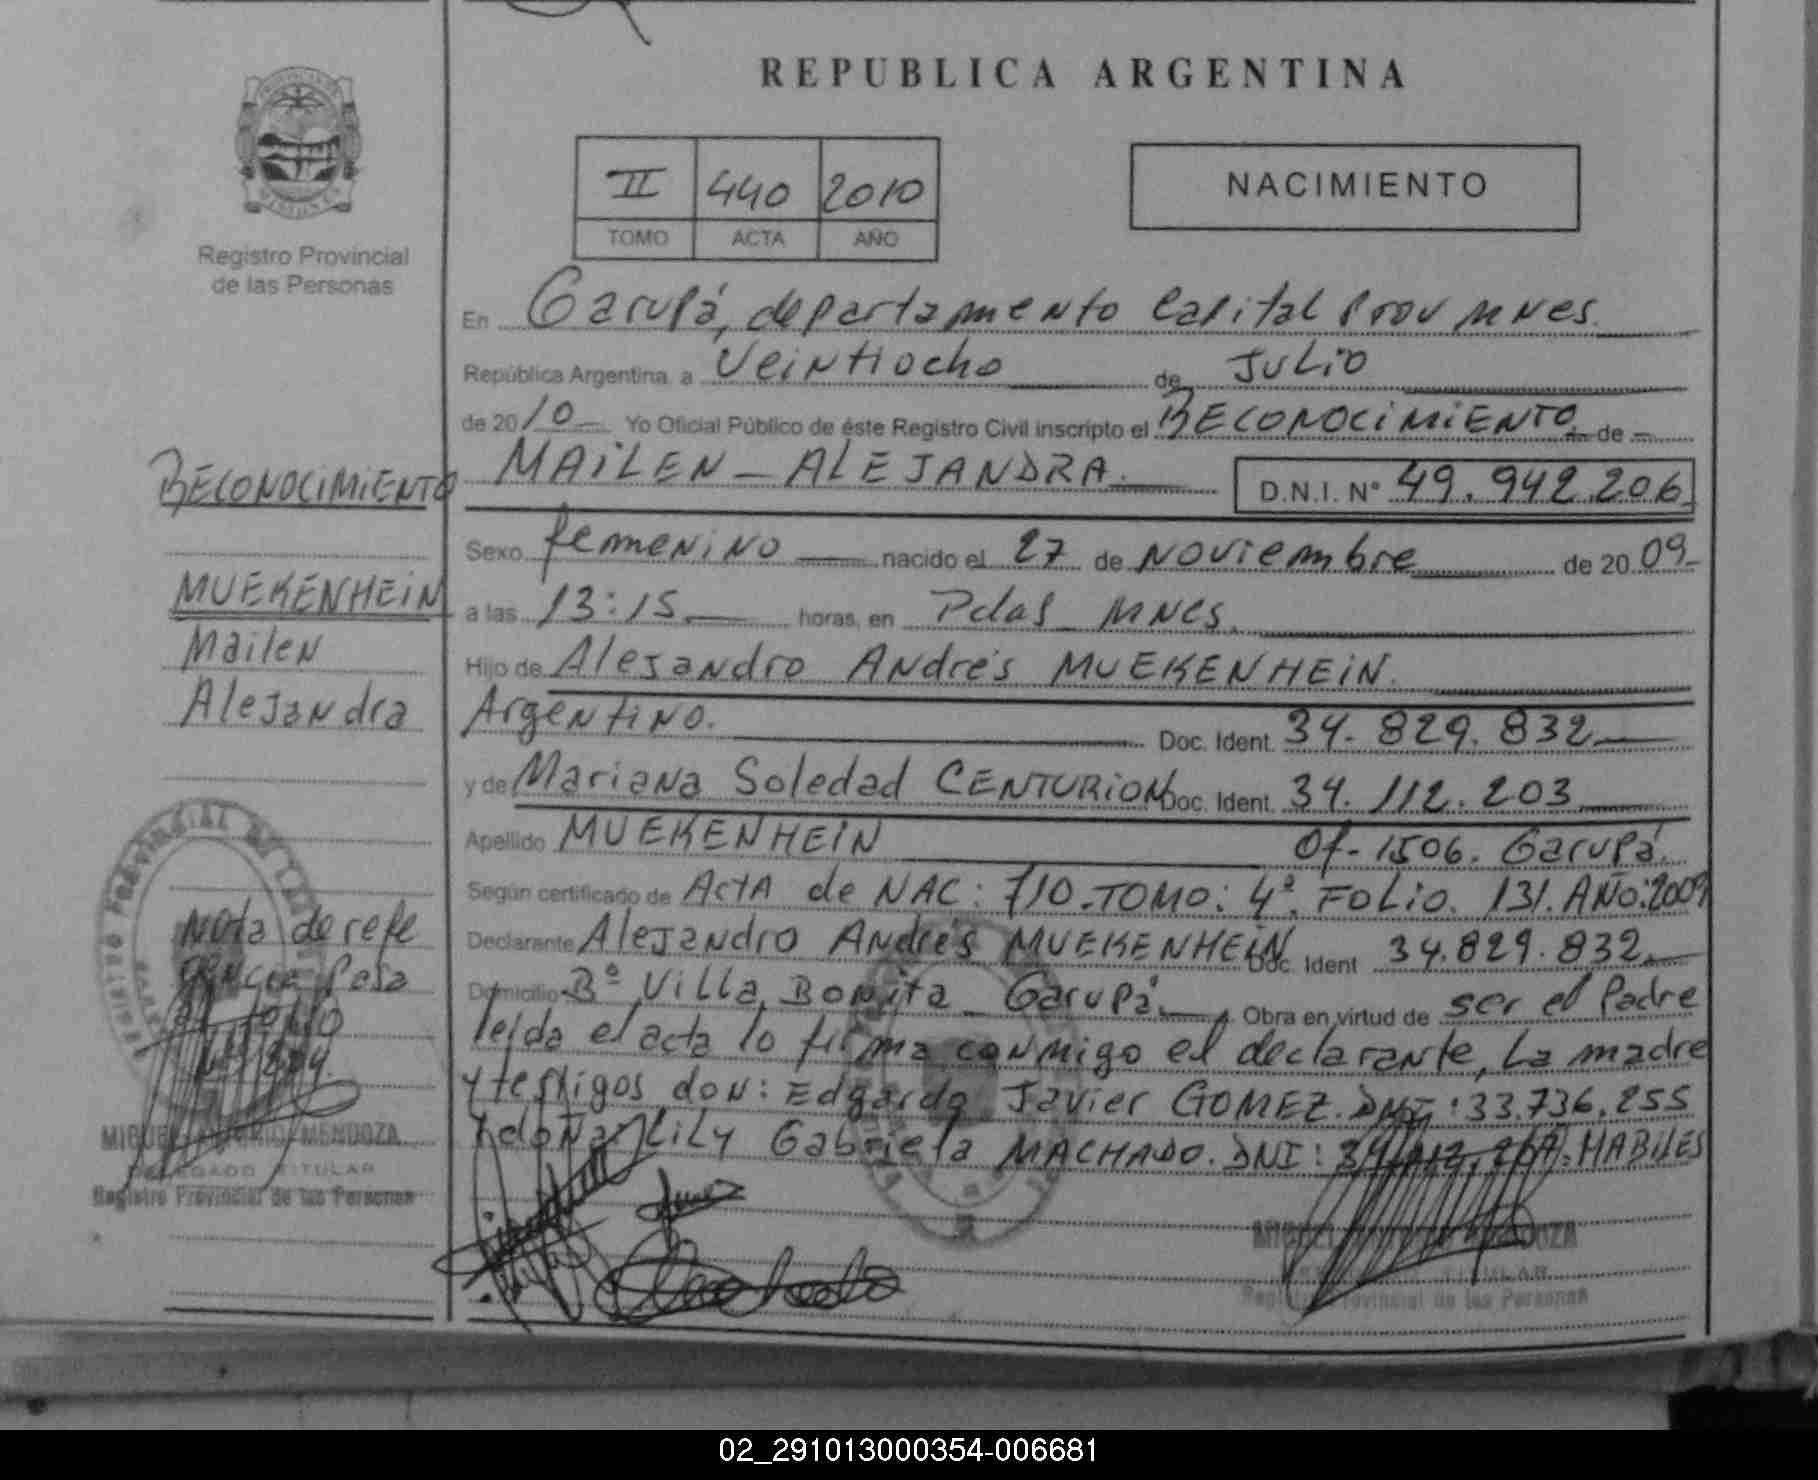 REPUBLICA ARGENTINA
II 440 2010
TOMO ACTA AÑO
NACIMIENTO
Registro Provincial
de las Personas
En Garupá, departamento Capital Prov MNES.
República Argentina a Veintiocho de Julio
de 2010 Yo Oficial Público de éste Registro Civil inscripto el RECONOCIMIENTO de
MAILEN ALEJANDRA. D.N.I. N° 49.942.206
Sexo femenino nacido el 27 de Noviembre de 2009
a las 13:15 horas, en Pdas MNES.
Hijo de Alejandro Andrés MUEKENHEIN.
Argentino. Doc. Ident. 34.829.832
y de Mariana Soledad CENTURION Doc. Ident. 34.112.203
Apellido MUEKENHEIN Of-1506. Garupá.
Según certificado de ACTA de NAC: 710. TOMO: 4º. FOLIO. 131. AÑO: 2009
Declarante Alejandro Andrés MUEKENHEIN Doc. Ident 34.829.832
Domicilio Bº Villa Bonita Garupá. Obra en virtud de ser el Padre
leida el acta lo firma conmigo el declarante, La madre
y testigos don: Edgardo Javier GOMEZ. DNI: 33.736.255
y doña: Lily Gabriela MACHADO. DNI: HABILES
RECONOCIMIENTO
MUEKENHEIN
Mailen
Alejandra
Nota de refe
rencia Pasa
MIGUEL MENDOZA
DELEGADO TITULAR
Registro Provincial de las Personas
MIGUEL MENDOZA
TITULAR
Registro Provincial de las Personas
02_291013000354-006681